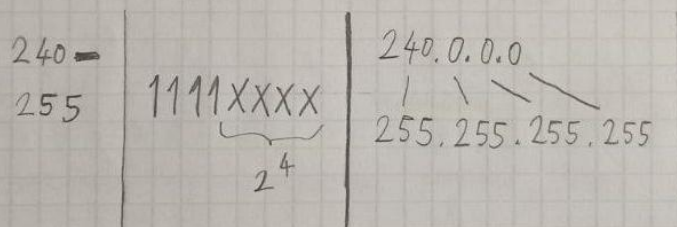 240-
255
1111XXXX
2^4
240.0.0.0
255.255.255.255